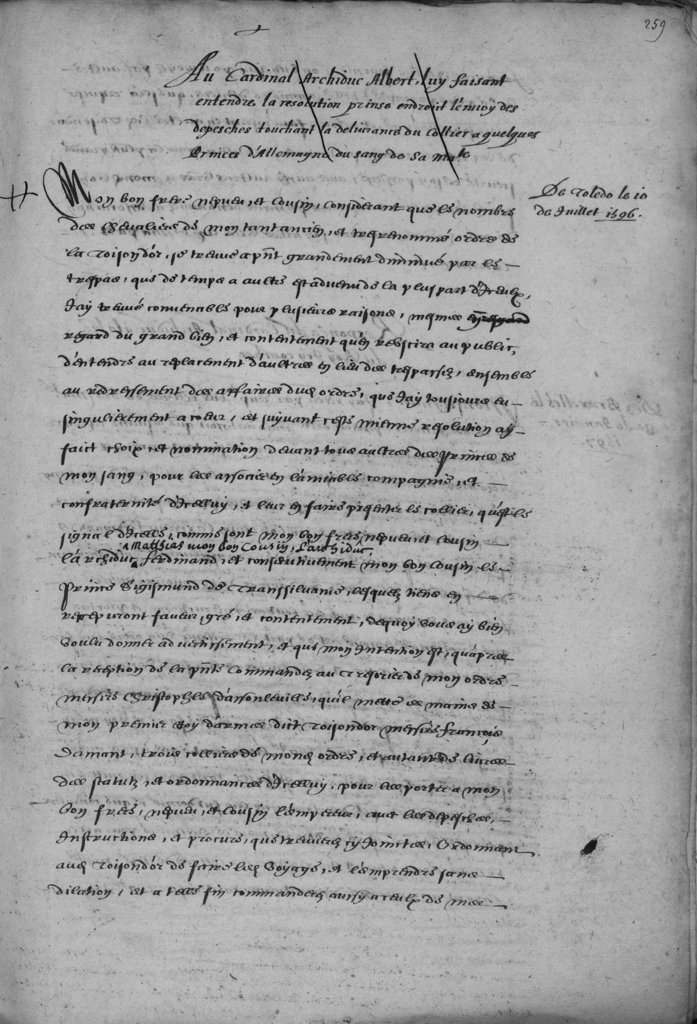 259
Au Cardinal Archiduc Albert, luy faisant
entendre la resolution prinse endroit l'envoy des
depesches touchant la delivrance du Collier a quelques
Princes d'Allemagne du sang de Sa Ma.te
De Toledo le 10
de Juillet 1596.
Mon bon frere nepveu, et Cousin, Considerant que le nombre
des Chevaliers de mon tant ancien, et tresrenommé ordre de
la Toison d'or, se treuve a p̃nt grandement diminué par le
trespas, que de temps a aultre est advenu de la pluspart d'Iceulx,
J'ay treuvé convenable pour plusieurs raisons, mesmes
regard du grand bien, et contentement qu'en reuscira au public,
d'entendre au replacement d'aultres en lieu des trespassez, ensemble
au redressement des affaires dud. ordre, que J'ay tousjours eu
singulierement a coeur, et suyvant ceste mienne resolution ay
faict choix et nomination devant tous aultres des Princes de
mon sang, pour les associer en l'amiable compagnie, et
confraternité d'Icelluy, et leur en faire presenter le collier, qu'est le
signal d'Icelle, comme sont mon bon frere nepveu et Cousin
Matthias mon bon Cousin, l'archiduc
l'archiduc Ferdinand, et consecutivement mon bon Cousin le
Prince Sigismund de Transsilvanie, lesquelz tiens en
recepvront faveur, gré, et contentement, dequoy vous ay bien
voulu donner advertissement, et que mon Intention est, qu'apres
la reception de la p̃nte Commandez au Tresorier de mon ordre
messire Christophle d'Assonleville, qu'il mette es mains de
mon premier Roy d'armes dict Toison d'or messire François
Damant, trois colliers de mond. ordre, et autant de livres
des statutz, et ordonnances d'Icelluy, pour les porter a mon
bon frere, nepveu, et Cousin l'empereur, avec les depesches,
Instructions, et procure, que treuverez cy Joinctes, Ordonnant
aud. Toison d'or de faire led. voyage, et l'emprendre sans
dilation, et a telle fin commanderez aussy a ceulx de mes